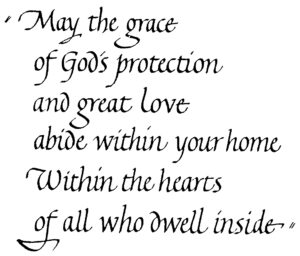 "May the grace
of God's protection
and great love
abide within your home
Within the hearts
of all who dwell inside"